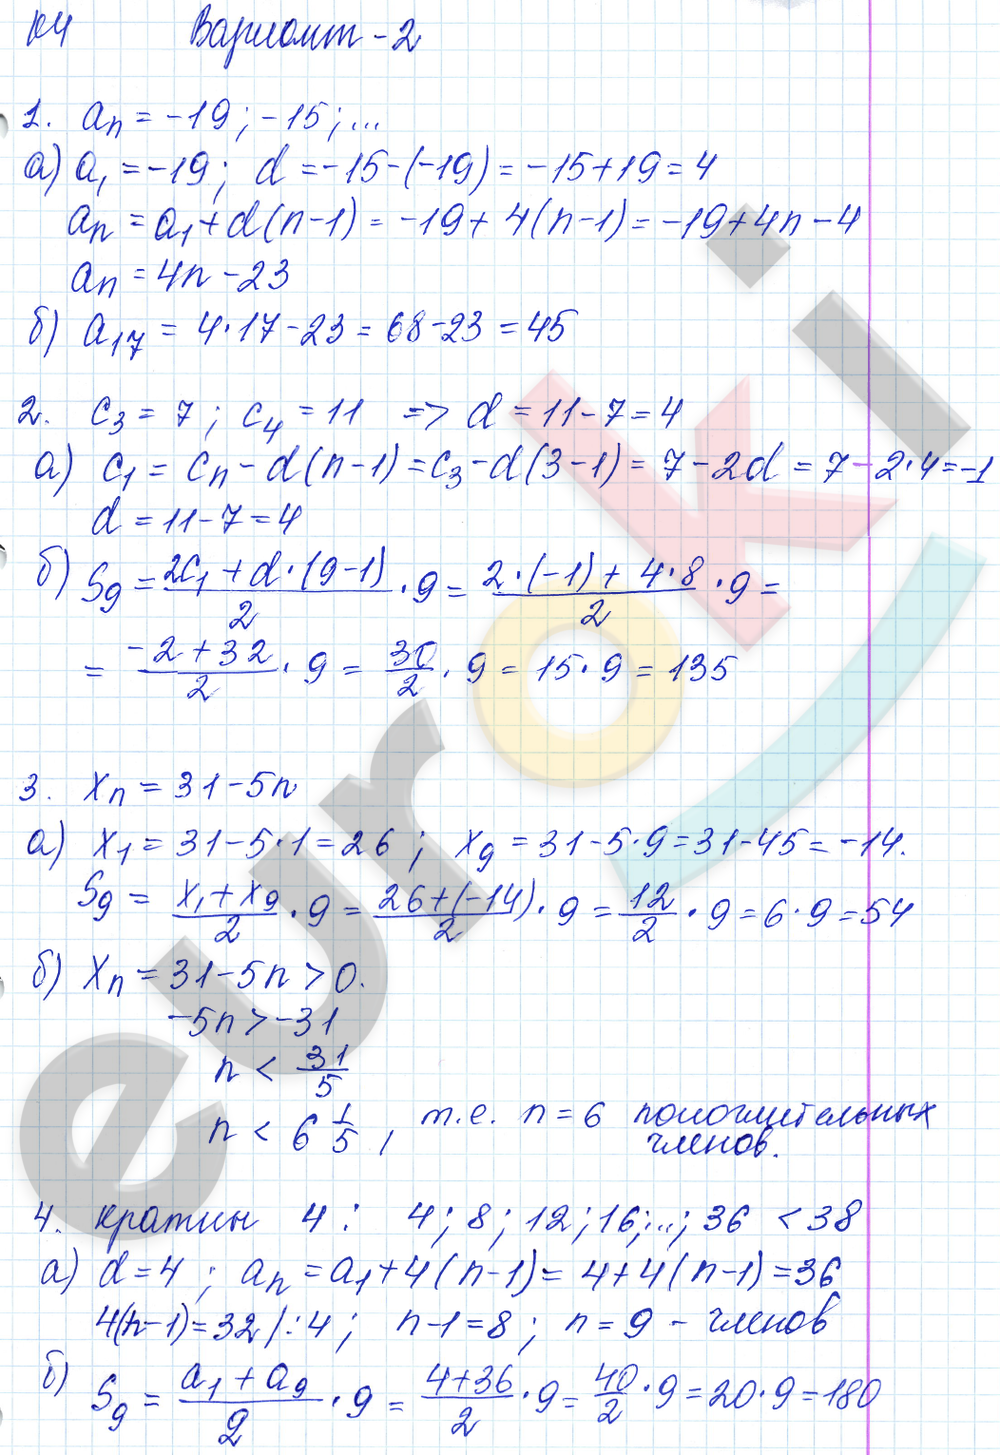 К4 Вариант - 2
1. aₙ = -19; -15; ...
а) a₁ = -19; d = -15-(-19) = -15+19 = 4
aₙ = a₁ + d(n-1) = -19 + 4(n-1) = -19+4n-4
aₙ = 4n - 23
б) a₁₇ = 4·17-23 = 68-23 = 45
2. c₃ = 7; c₄ = 11 => d = 11-7 = 4
а) c₁ = cₙ - d(n-1) = c₃ - d(3-1) = 7-2d = 7-2·4 = -1
d = 11-7 = 4
б) S₉ = (2c₁ + d·(9-1))/2 · 9 = (2·(-1) + 4·8)/2 · 9 =
= (-2+32)/2 · 9 = 30/2 · 9 = 15·9 = 135
3. xₙ = 31-5n
а) x₁ = 31-5·1 = 26; x₉ = 31-5·9 = 31-45 = -14.
S₉ = (x₁+x₉)/2 · 9 = (26+(-14))/2 · 9 = 12/2 · 9 = 6·9 = 54
б) xₙ = 31-5n > 0.
-5n > -31
n < 31/5
n < 6 1/5, т.е. n = 6 положительных
членов.
4. кратны 4: 4; 8; 12; 16; ...; 36 < 38
а) d = 4; aₙ = a₁+4(n-1) = 4+4(n-1) = 36
4(n-1) = 32 /:4; n-1 = 8; n = 9 - членов
б) S₉ = (a₁ + a₉)/2 · 9 = (4+36)/2 · 9 = 40/2 · 9 = 20·9 = 180
euroki